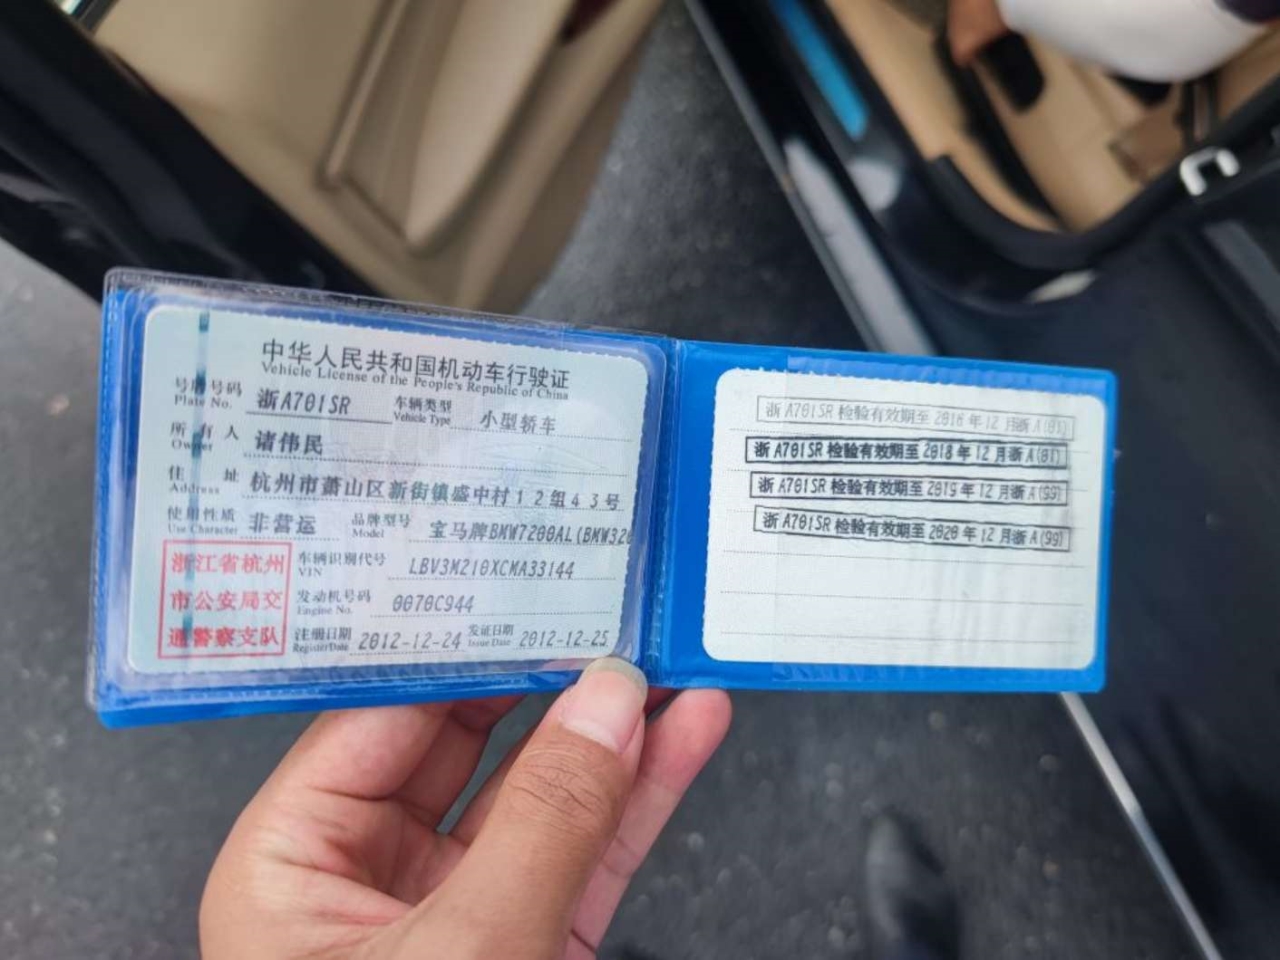 中华人民共和国机动车行驶证
Vehicle License of the People's Republic of China
号牌号码 浙A701SR 车辆类型 小型轿车
Plate No. Vehicle Type
所有人 诸伟民
Owner
住址 杭州市萧山区新街镇盛中村12组43号
Address
使用性质 非营运 品牌型号 宝马牌BMW7200AL(BMW320
Use Character Model
浙江省杭州
市公安局交
通警察支队
车辆识别代号 LBV3M210XCMA33144
VIN
发动机号码 0070C944
Engine No.
注册日期 2012-12-24 发证日期 2012-12-25
Register Date Issue Date
浙A701SR检验有效期至2016年12月浙A(01)
浙A701SR检验有效期至2018年12月浙A(01)
浙A701SR检验有效期至2019年12月浙A(99)
浙A701SR检验有效期至2020年12月浙A(99)